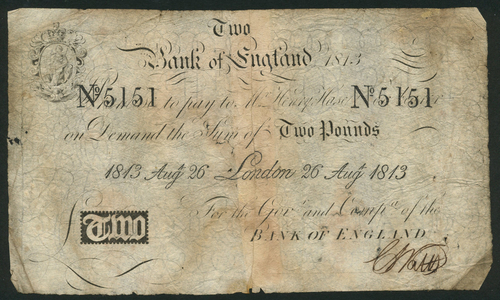 Two
Bank of England 1813
No. 5151 to pay to Mr. Henry Hase No. 5151
on Demand the Sum of Two Pounds
1813 Augt 26 London 26 Augt 1813
£ Two
For the Govr. and Compa. of the
BANK OF ENGLAND